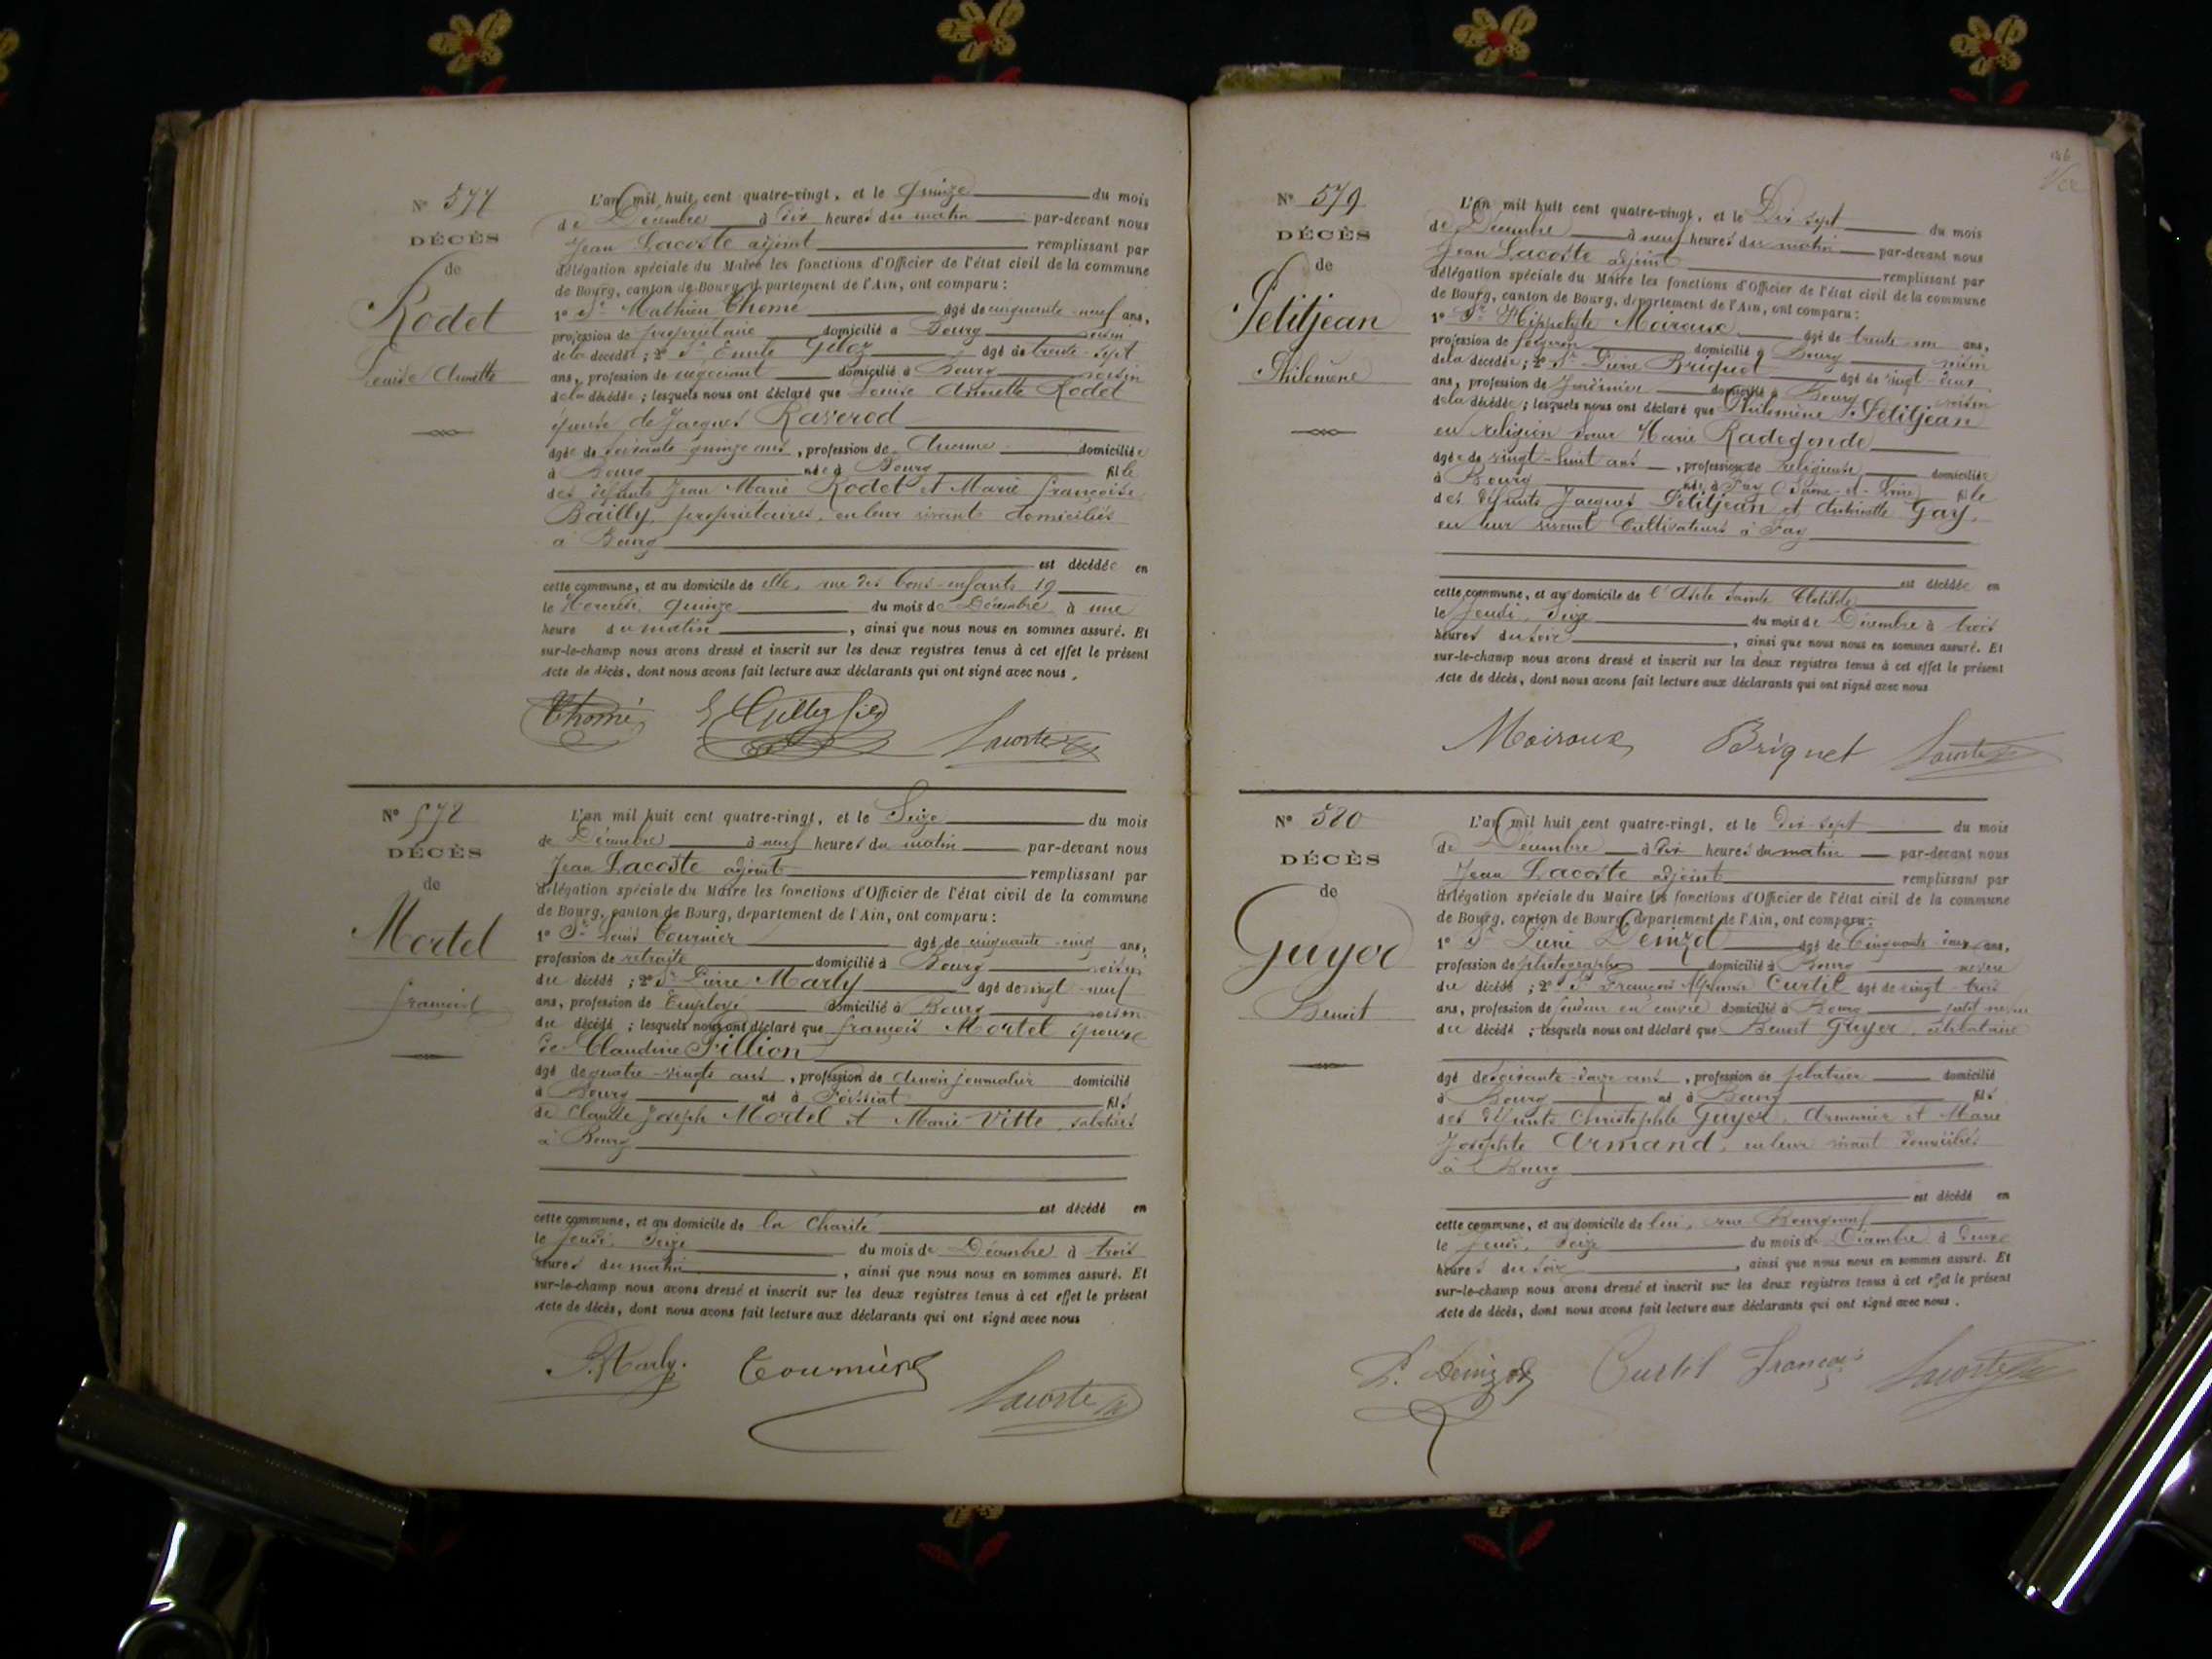 N° 577
DÉCÈS
de
Rodet
Louise Annette
L'an mil huit cent quatre-vingt, et le Quinze du mois
de Décembre à Dix heures du matin par-devant nous
Jean Lacoste adjoint remplissant par
délégation spéciale du Maire les fonctions d'Officier de l'état civil de la commune
de Bourg, canton de Bourg, département de l'Ain, ont comparu :
1° Sr Mathieu Thomé âgé de cinquante-neuf ans,
profession de propriétaire domicilié à Bourg voisin
de la décédée ; 2° Sr âgé de trente-sept
ans, profession de négociant domicilié à Bourg voisin
de la décédée ; lesquels nous ont déclaré que Louise Annette Rodet
épouse de Jacques Raverod
âgée de soixante-quinze ans, profession de Aucune domiciliée
à Bourg née à Bourg fille
des défunts Jean Marie Rodet et Marie Françoise
Bailly, propriétaires, en leur vivant domiciliés
à Bourg
est décédée en
cette commune, et au domicile de elle, rue des bons-enfants 19
le Mercredi, quinze du mois de Décembre à une
heure du matin, ainsi que nous nous en sommes assuré. Et
sur-le-champ nous avons dressé et inscrit sur les deux registres tenus à cet effet le présent
Acte de décès, dont nous avons fait lecture aux déclarants qui ont signé avec nous.
Thomé Lacoste
N° 578
DÉCÈS
de
Mortel
François
L'an mil huit cent quatre-vingt, et le Seize du mois
de Décembre à neuf heures du matin par-devant nous
Jean Lacoste adjoint remplissant par
délégation spéciale du Maire les fonctions d'Officier de l'état civil de la commune
de Bourg, canton de Bourg, département de l'Ain, ont comparu :
1° Sr Louis Tournier âgé de cinquante-cinq ans,
profession de retraité domicilié à Bourg voisin
du décédé ; 2° Sr Pierre Marly âgé de vingt-neuf
ans, profession de Employé domicilié à Bourg voisin
du décédé ; lesquels nous ont déclaré que François Mortel époux
de Claudine Pillion
âgé de quatre-vingts ans, profession de ancien journalier domicilié
à Bourg né à Foissiat fils
de Claude Joseph Mortel et Marie Vitte, sabotiers
à Bourg
est décédé en
cette commune, et au domicile de la Charité
le Jeudi, Seize du mois de Décembre à trois
heures du matin, ainsi que nous nous en sommes assuré. Et
sur-le-champ nous avons dressé et inscrit sur les deux registres tenus à cet effet le présent
Acte de décès, dont nous avons fait lecture aux déclarants qui ont signé avec nous
P. Marly. Tournier
Lacoste
N° 579
DÉCÈS
de
Petitjean
Philomène
L'an mil huit cent quatre-vingt, et le Dix sept du mois
de Décembre à neuf heures du matin par-devant nous
Jean Lacoste adjoint remplissant par
délégation spéciale du Maire les fonctions d'Officier de l'état civil de la commune
de Bourg, canton de Bourg, département de l'Ain, ont comparu :
1° Sr Hippolyte Moiroux âgé de trente-un ans,
profession de domicilié à Bourg voisin
de la décédée ; 2° Sr Pierre Briquet âgé de vingt-deux
ans, profession de domicilié à Bourg voisin
de la décédée ; lesquels nous ont déclaré que Philomène Petitjean
en religion soeur Marie Radegonde
âgée de vingt-huit ans, profession de religieuse domiciliée
à Bourg née à Fay (Saône-et-Loire) fille
des défunts Jacques Petitjean et Antoinette Gay,
en leur vivant Cultivateurs à Fay
est décédée en
cette commune, et au domicile de l'Asile Sainte Clotilde
le Jeudi, Seize du mois de Décembre à trois
heures du soir, ainsi que nous nous en sommes assuré. Et
sur-le-champ nous avons dressé et inscrit sur les deux registres tenus à cet effet le présent
Acte de décès, dont nous avons fait lecture aux déclarants qui ont signé avec nous
Moiroux Briquet Lacoste
N° 580
DÉCÈS
de
Guyod
Benoit
L'an mil huit cent quatre-vingt, et le dix-sept du mois
de Décembre à Dix heures du matin par-devant nous
Jean Lacoste adjoint remplissant par
délégation spéciale du Maire les fonctions d'Officier de l'état civil de la commune
de Bourg, canton de Bourg, département de l'Ain, ont comparu :
1° Sr Pierre Denizot âgé de Cinquante-deux ans,
profession de photographe domicilié à Bourg neveu
du décédé ; 2° Sr François Alphonse Curtil âgé de vingt-trois
ans, profession de fondeur en cuivre domicilié à Bourg petit neveu
du décédé ; lesquels nous ont déclaré que Benoit Guyod, célibataire
âgé de soixante-onze ans, profession de plâtrier domicilié
à Bourg né à Bourg fils
des défunts Christophle Guyod, Armurier et Marie
Josephte Armand, en leur vivant domiciliés
à Bourg
est décédé en
cette commune, et au domicile de lui, rue Bourgneuf
le Jeudi, Seize du mois de Décembre à Deux
heures du soir, ainsi que nous nous en sommes assuré. Et
sur-le-champ nous avons dressé et inscrit sur les deux registres tenus à cet effet le présent
Acte de décès, dont nous avons fait lecture aux déclarants qui ont signé avec nous.
P. Denizot Curtil François Lacoste